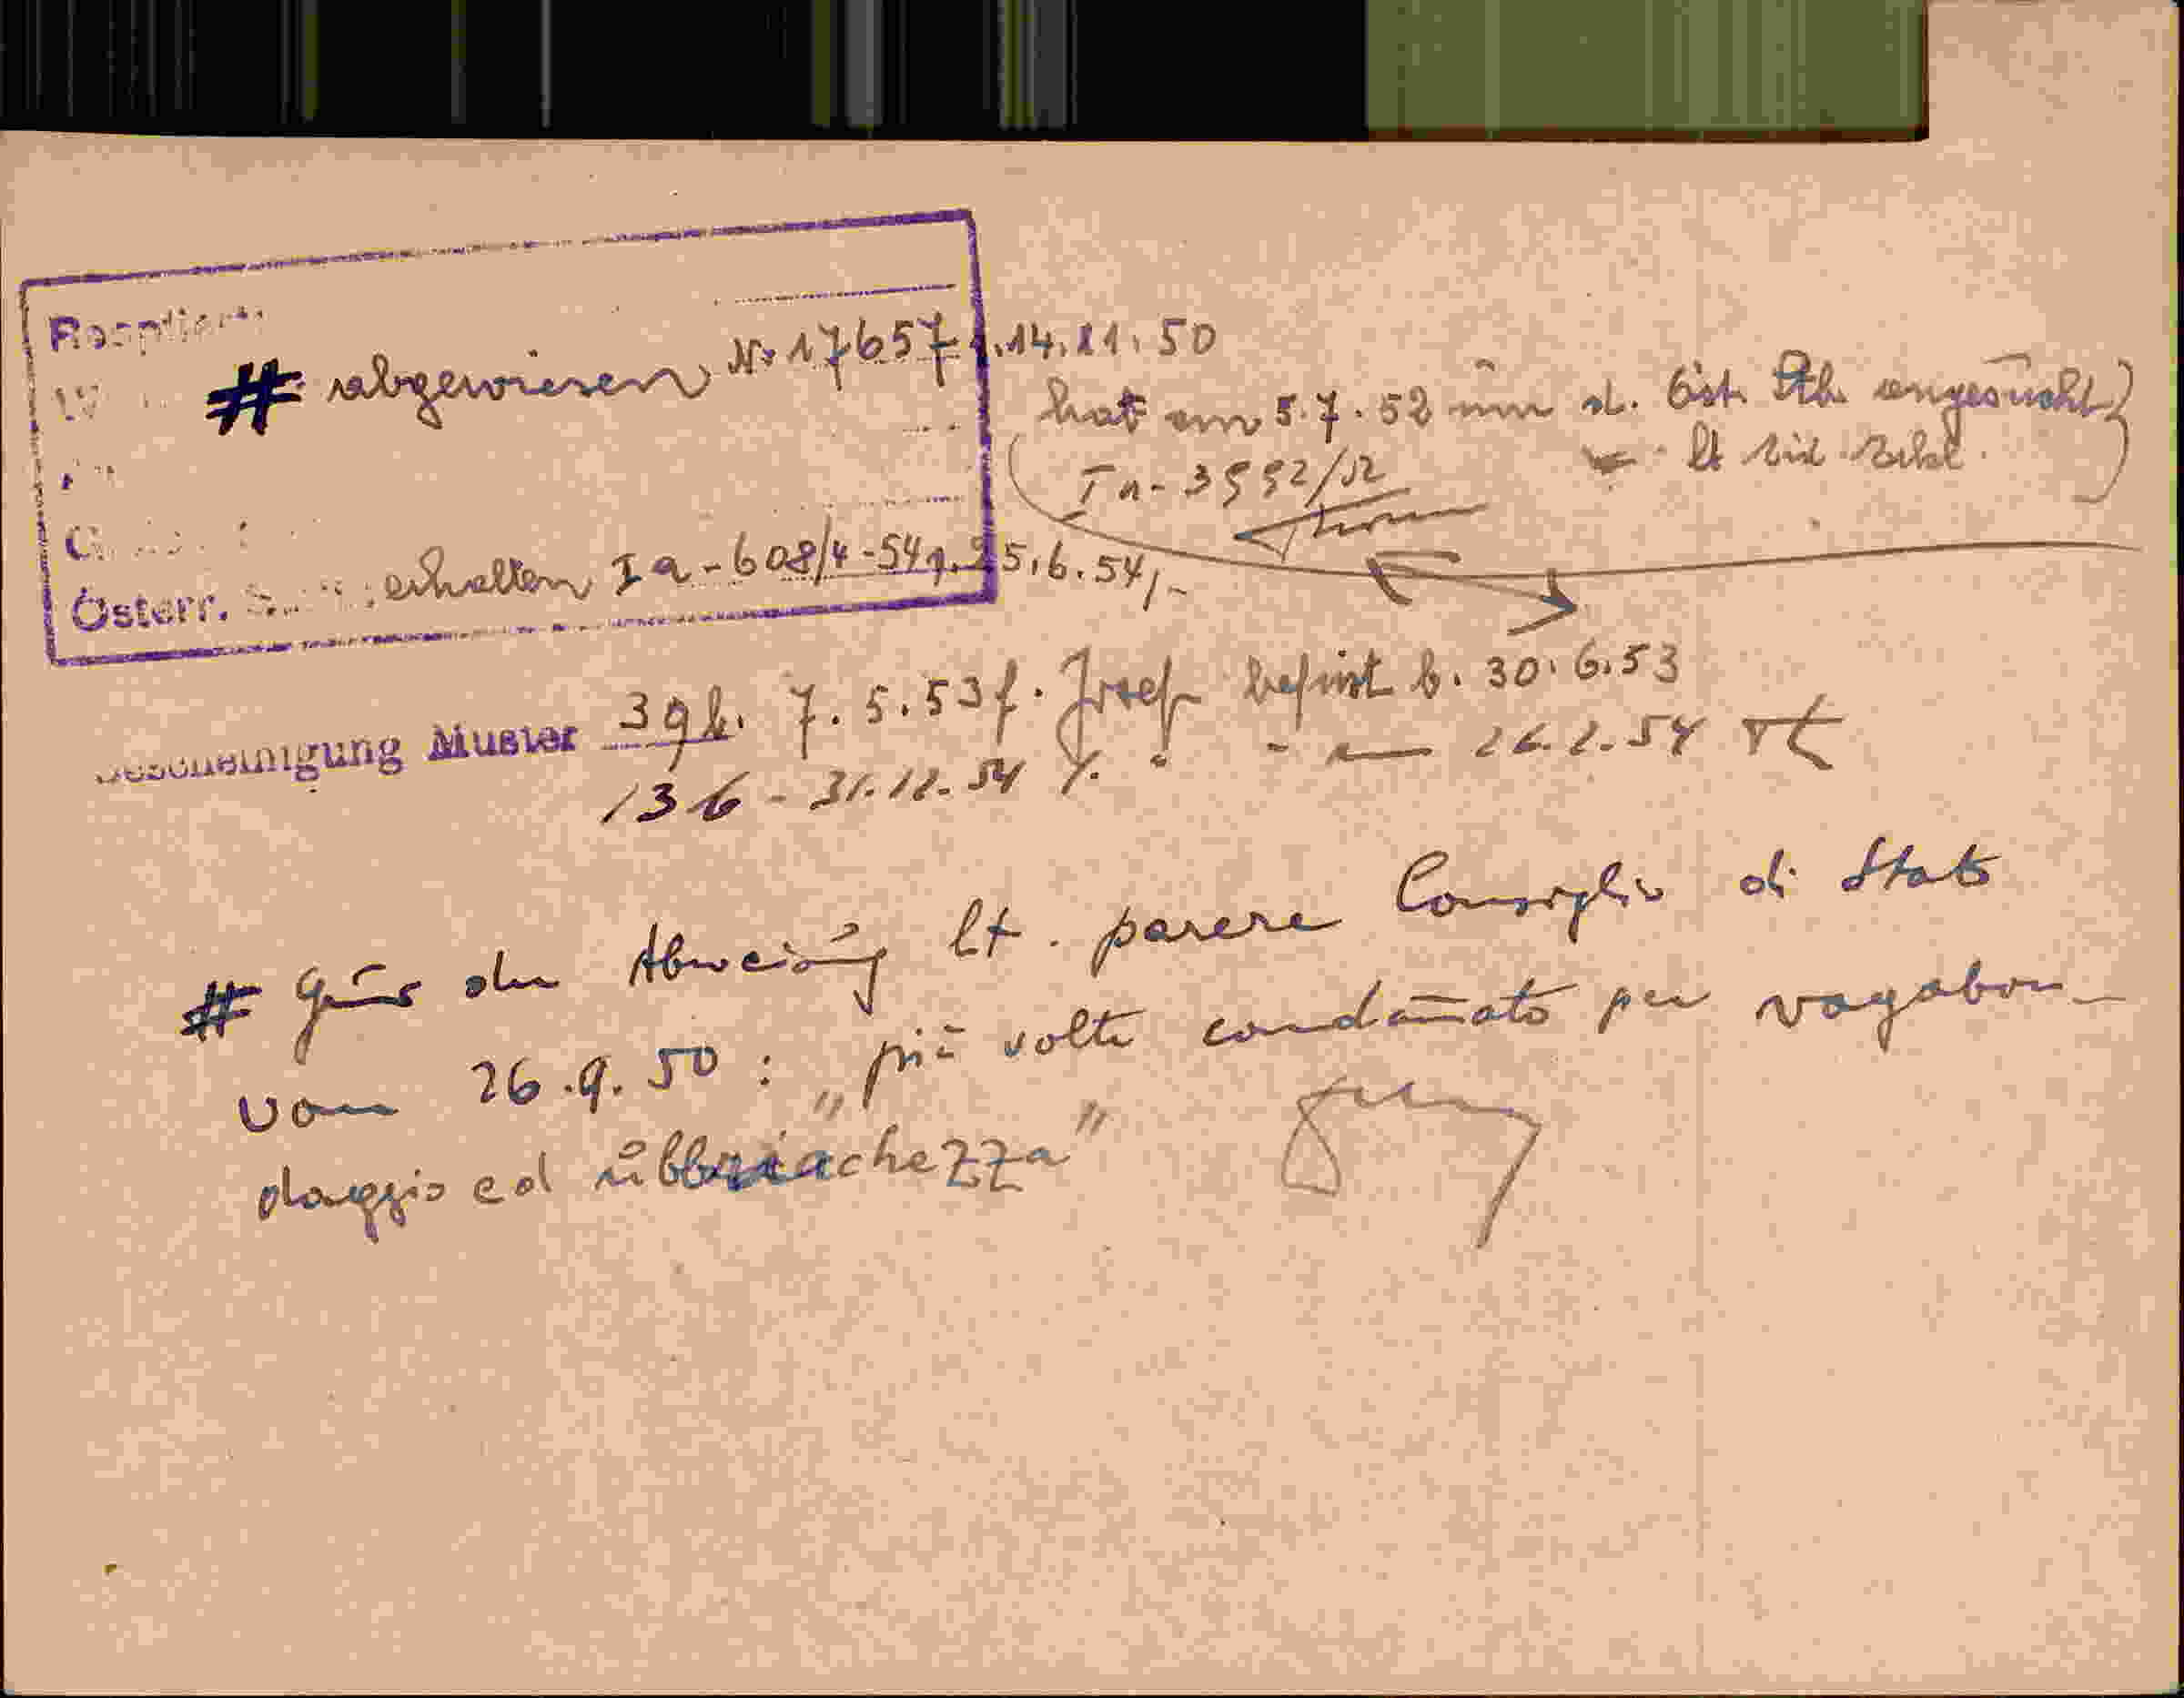 # abgewiesen Nr. 17657 v. 14.11.50
hat am 5.7.52 um d. Öst. Stb. angesucht
Ia-3992/52 lt
Österr. erhalten Ia-608/4-54 v. 25.6.54/-
Bescheinigung Muster 39b. 7.5.53 f. Josef befrist b. 30.6.53
136 - 31.12.54 f. " - 26.2.54
# der Abweisung lt. parere Consiglio di Stato
vom 26.9.50 : „più volte condannato per vagabon-
daggio ed ubbriachezza"